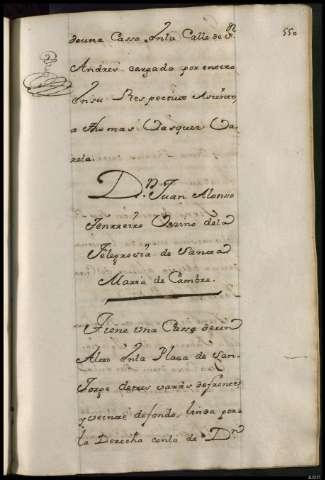 550
de una Cassa Inta Calle de Sn.
Andres cargada por entero
Insu Respectivo Asiento,
a Thomas Vasquez Va
rela.
Dn. Juan Alonso
Ferreiro Vezino dela
Felegrecia de Santa
Maria de Cambre.
Tiene Una Cassa de un
Alto Inta Plaza de San
Jorge de tres varas defrente
y veinte defondo, linda por
la Derecha conla de Dn.